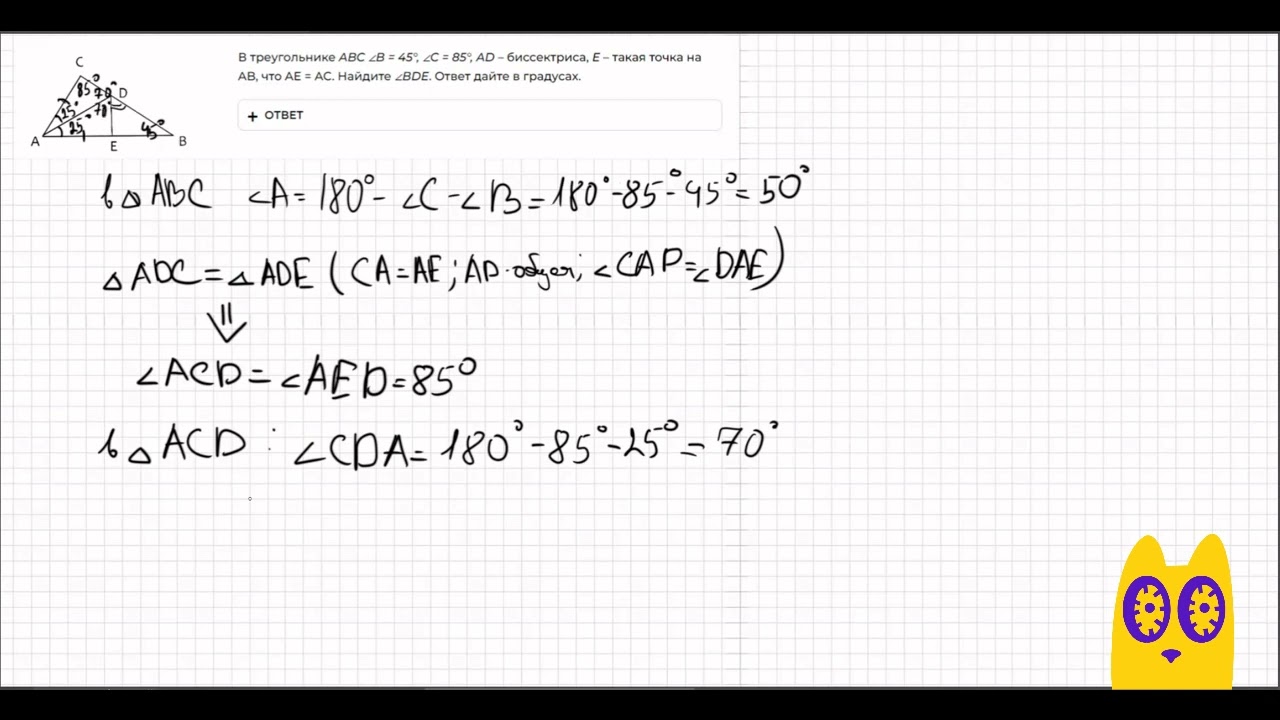 В треугольнике ABC ∠B = 45°, ∠C = 85°, AD – биссектриса, E – такая точка на
AB, что AE = AC. Найдите ∠BDE. Ответ дайте в градусах.
+ ОТВЕТ
C
85° 70° D
25° 70°
25° 45°
A E B
в △ ABC ∠A = 180° - ∠C - ∠B = 180° - 85° - 45° = 50°
△ ADC = △ ADE ( CA = AE ; AD - общая ; ∠CAD = ∠DAE )
⇓
∠ACD = ∠AED = 85°
в △ ACD : ∠CDA = 180° - 85° - 25° = 70°